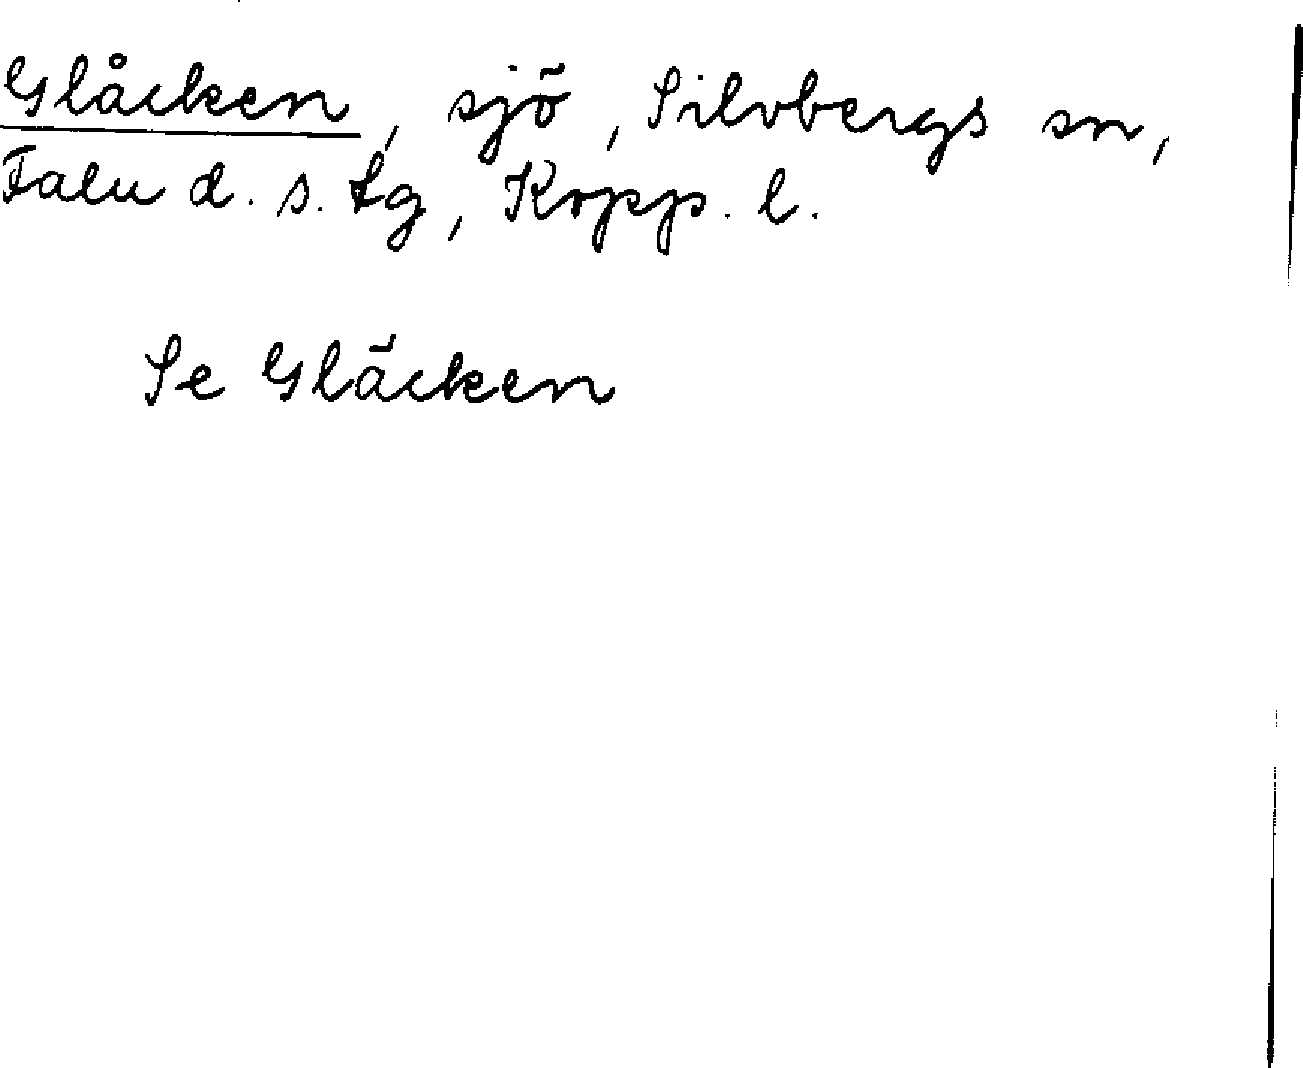 Glåcken, sjö, Silvbergs sn,
Falu d. s. tg, Kopp. l.
Se Gläcken